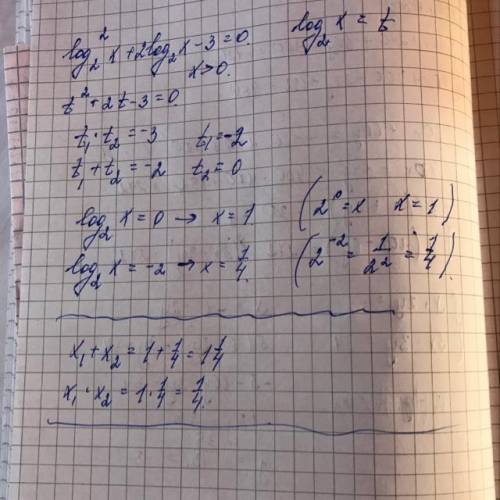 log₂²x + 2log₂x - 3 = 0.
log₂x = t
x>0.
t² + 2t - 3 = 0.
t₁ · t₂ = -3 t₁ = -2
t₁ + t₂ = -2 t₂ = 0
log₂x = 0 → x = 1 (2⁰ = x x = 1)
log₂x = -2 → x = 1/4. (2⁻² = 1/2² = 1/4).
x₁ + x₂ = 1 + 1/4 = 1 1/4
x₁ · x₂ = 1 · 1/4 = 1/4.